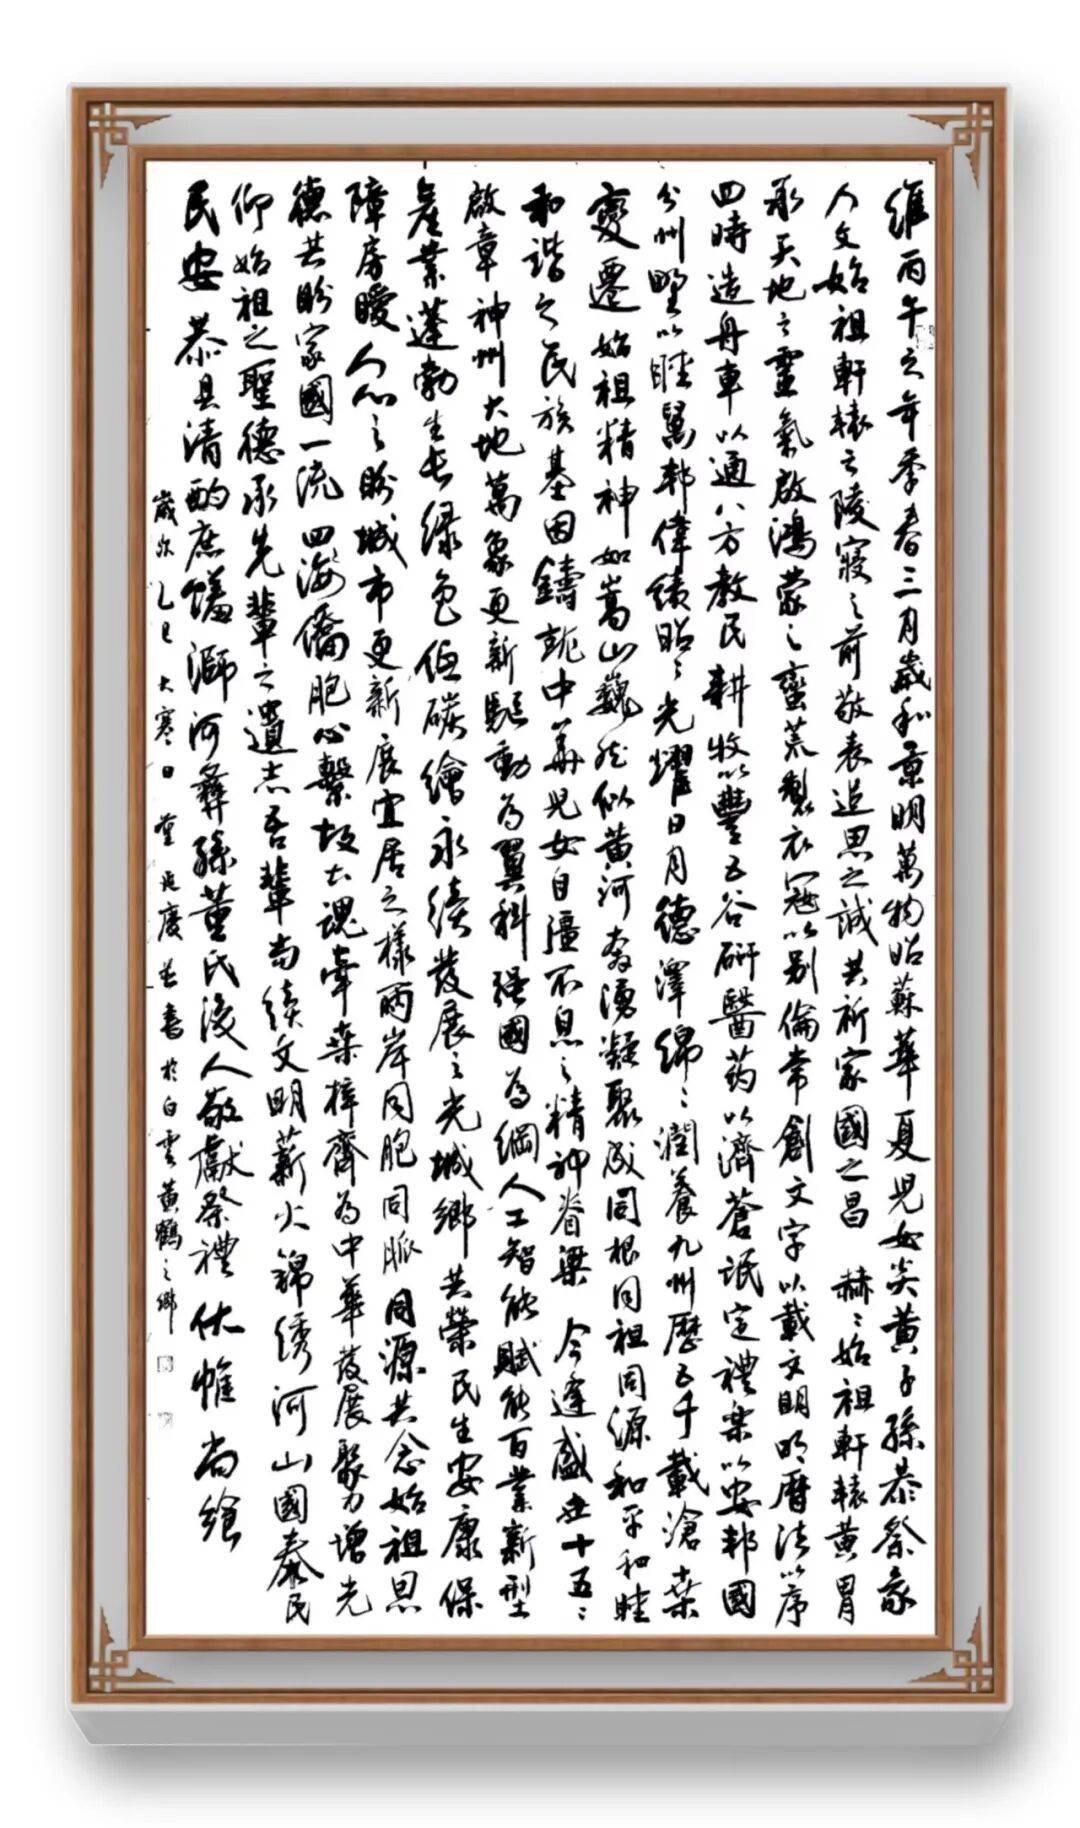 維丙午之年季春三月歲和景明萬物昭蘇華夏兒女炎黃子孫恭祭我
人文始祖軒轅之陵寢之前敬表追思之誠共祈家國之昌 赫〻始祖軒轅黃胄
承天地之靈氣啟鴻蒙之蠻荒製衣冠以别倫常創文字以載文明明曆法以序
四時造舟車以通八方教民耕牧以豐五谷研醫药以濟蒼氓定禮樂以安邦國
分州野以睦萬邦偉績昭〻光耀日月德澤綿〻潤養九州歷五千載滄桑
變遷始祖精神如嵩山巍然似黄河奔湧凝聚成同根同祖同源和平和睦
和諧之民族基因鑄就中華兒女自彊不息之精神脊梁 今逢盛世十五〻
啟章神州大地萬象更新駆動為翼科强國為綱人工智能賦能百業新型
產業蓬勃生長绿色低碳繪永續發展之光城鄉共榮民生安康保
障房暖人心之盼城市更新展宜居之樣兩岸同胞同脈同源共念始祖恩
德共盼家國一流四海僑胞心繫故土魂牽桒梓齊為中華發展聚力增光
仰始祖之聖德承先輩之遺志吾輩尚續文明薪火錦绣河山國泰民
民安恭具清酌庶饈溮河彝孫董氏後人敬獻祭禮伏惟尚飨
歲次乙巳大寒日董 慶 書於白雲黄鶴之鄉